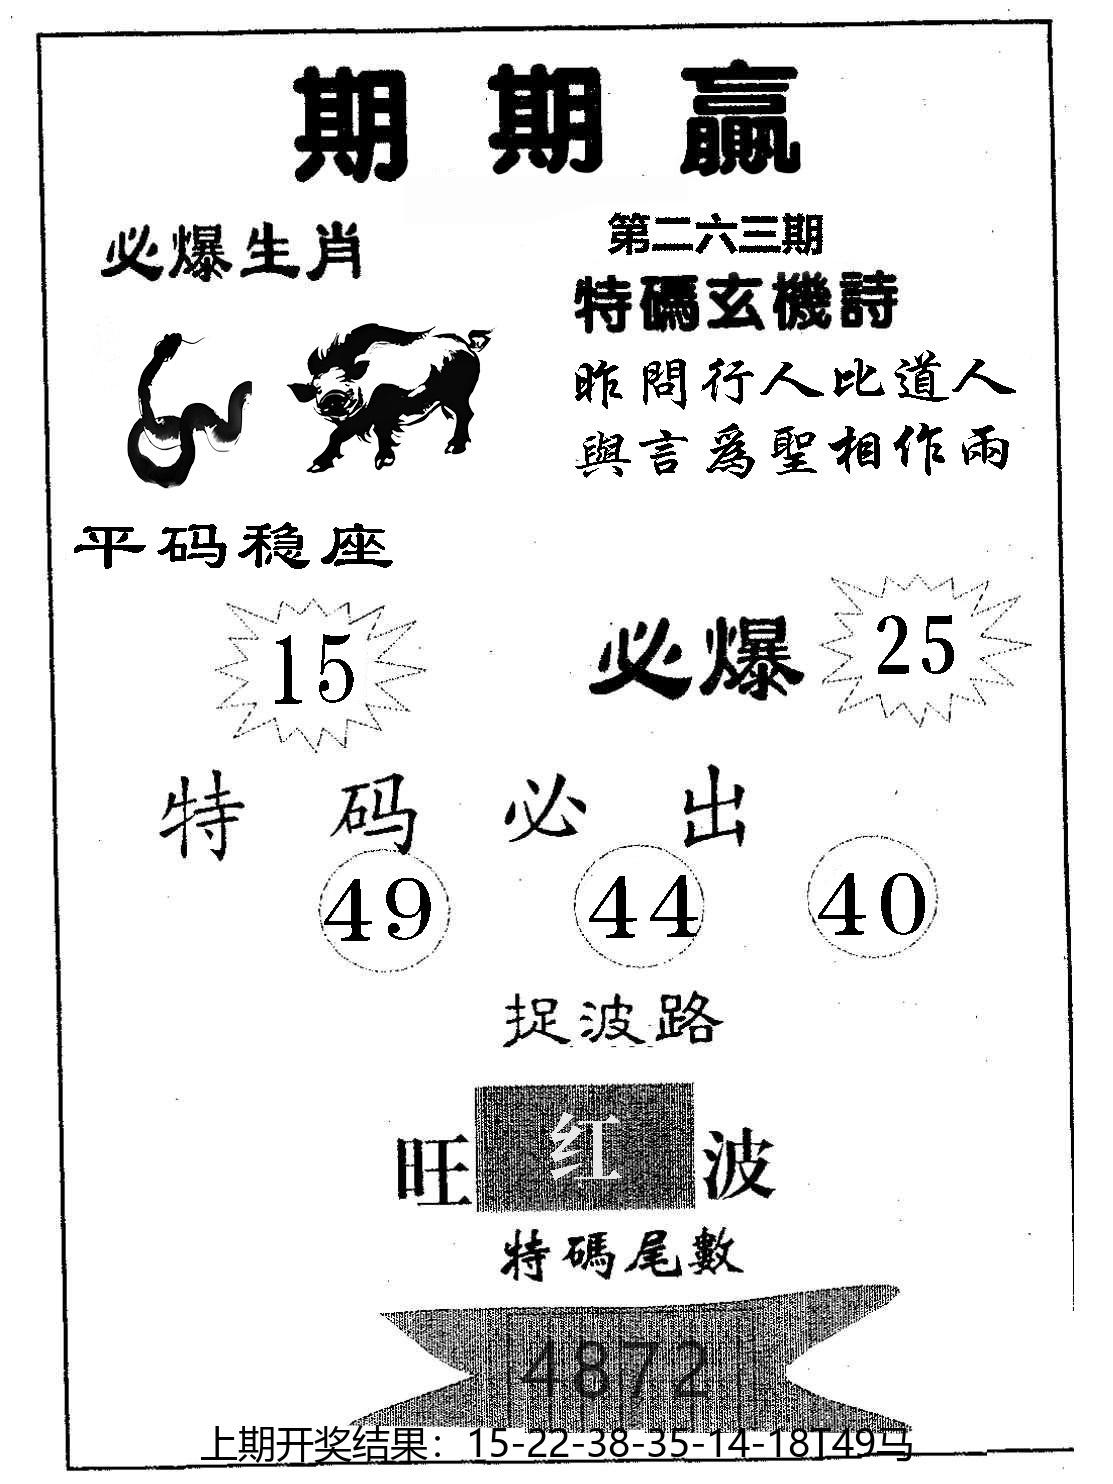 期期贏
必爆生肖
第二六三期
特碼玄機詩
昨問行人比道人
與言爲聖相作兩
平码稳座
15
必爆 25
特码必出
49 44 40
捉波路
旺红波
特碼尾數
4872
上期开奖结果：15-22-38-35-14-18T49马